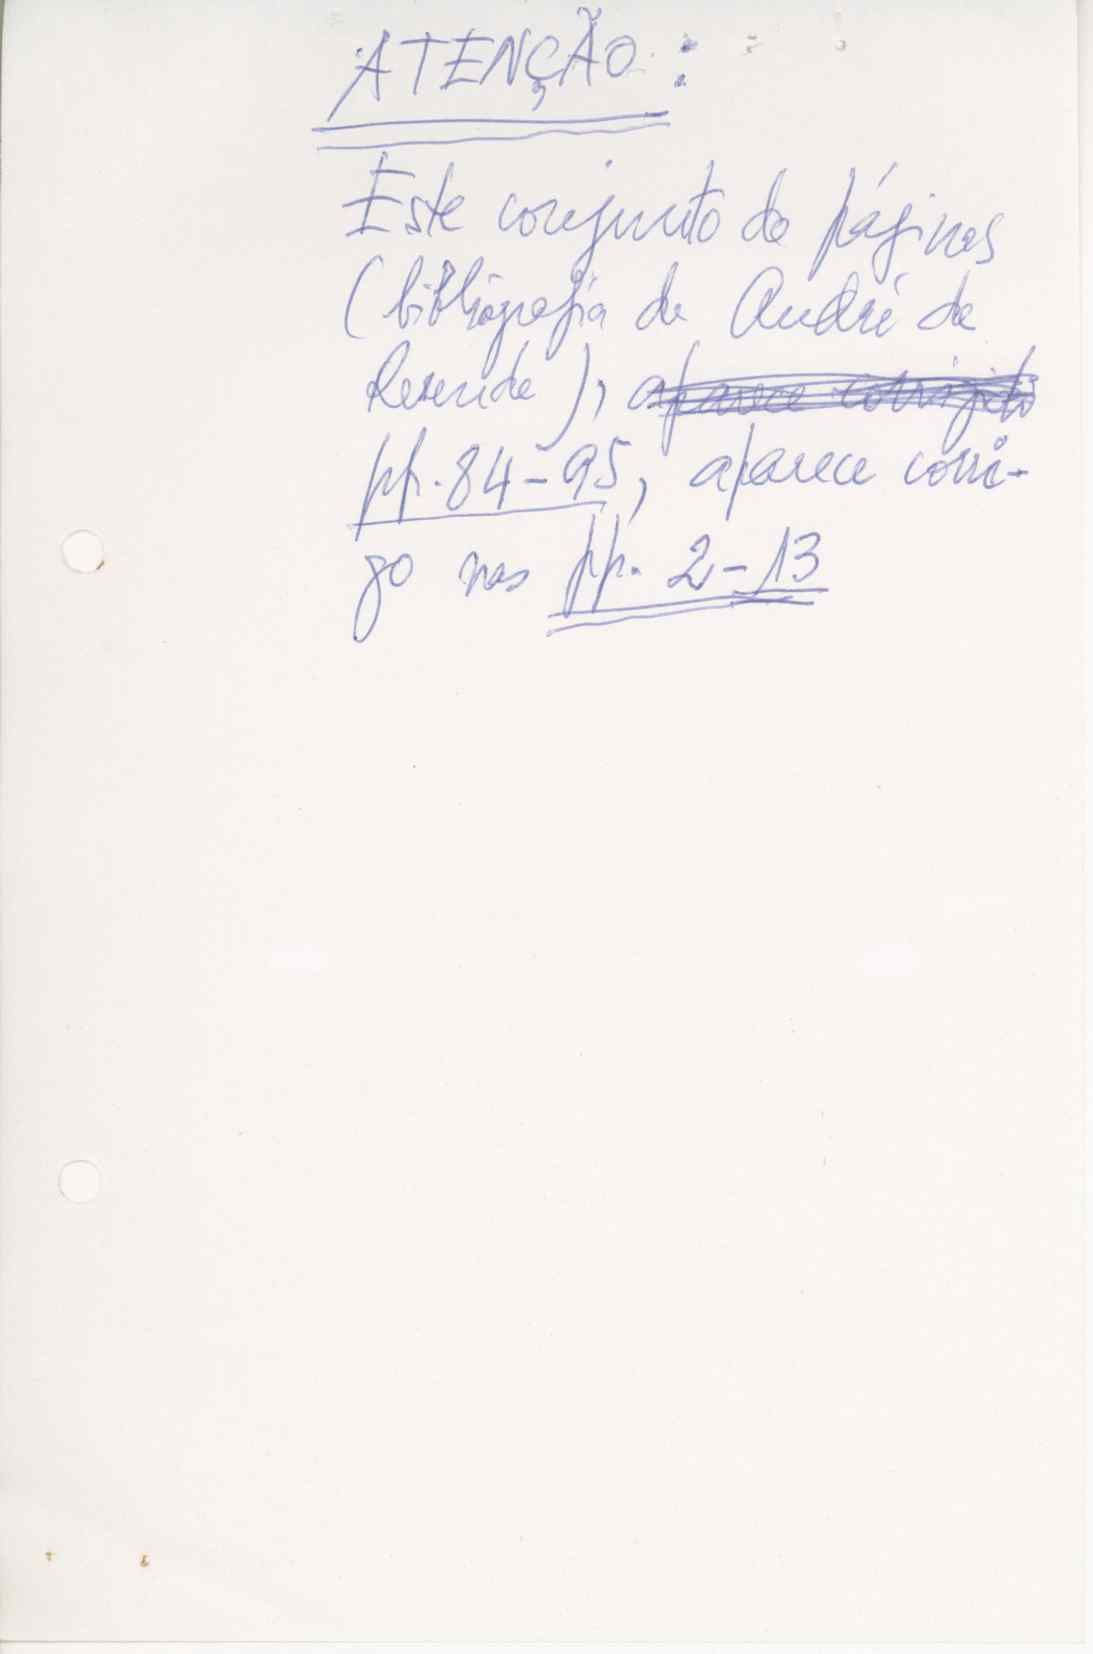 ATENÇÃO:
Este conjunto de páginas
(bibliografia de André de
Resende), aparece corrigido
pp. 84-95, aparece corri-
go nas pp. 2-13